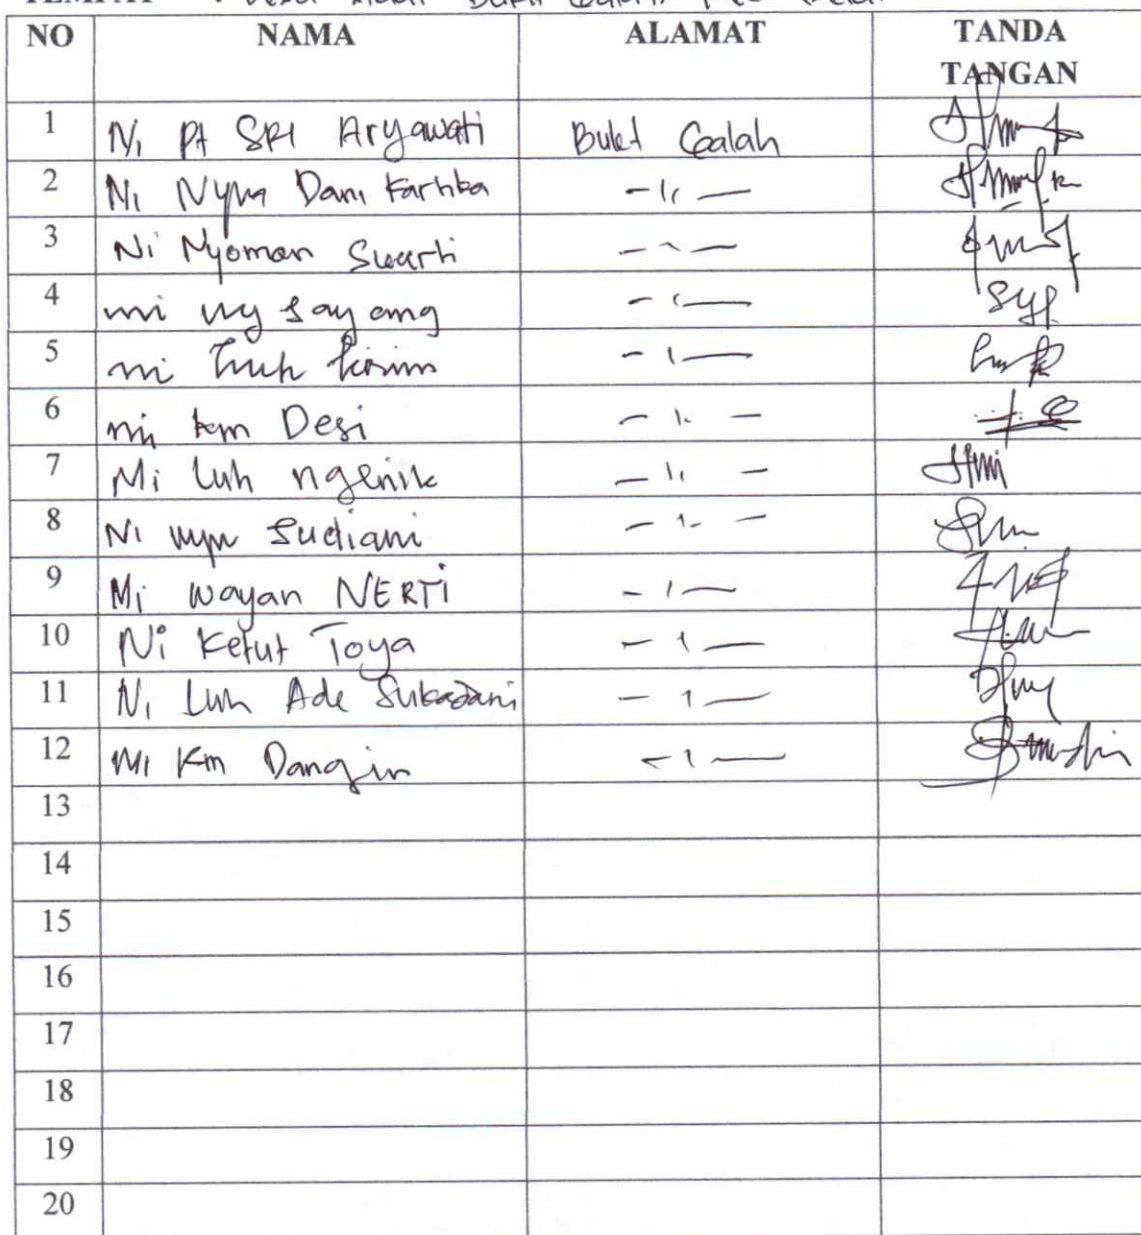 TEMPAT :
NO NAMA ALAMAT TANDA TANGAN
1 Ni Pt SRI Aryawati Bukit Galah
2 Ni Nym Dani Kartika -"-
3 Ni Nyoman Suarti -"-
4 ni ny sayang -"-
5 ni luh -"-
6 ni km Desi -"-
7 Ni Luh ngenik -"-
8 Ni nym Sudiani -"-
9 Ni Wayan NERTI -"-
10 Ni Ketut Toya -"-
11 Ni Luh Ade Sukadani -"-
12 Ni Km Dangin -"-
13
14
15
16
17
18
19
20